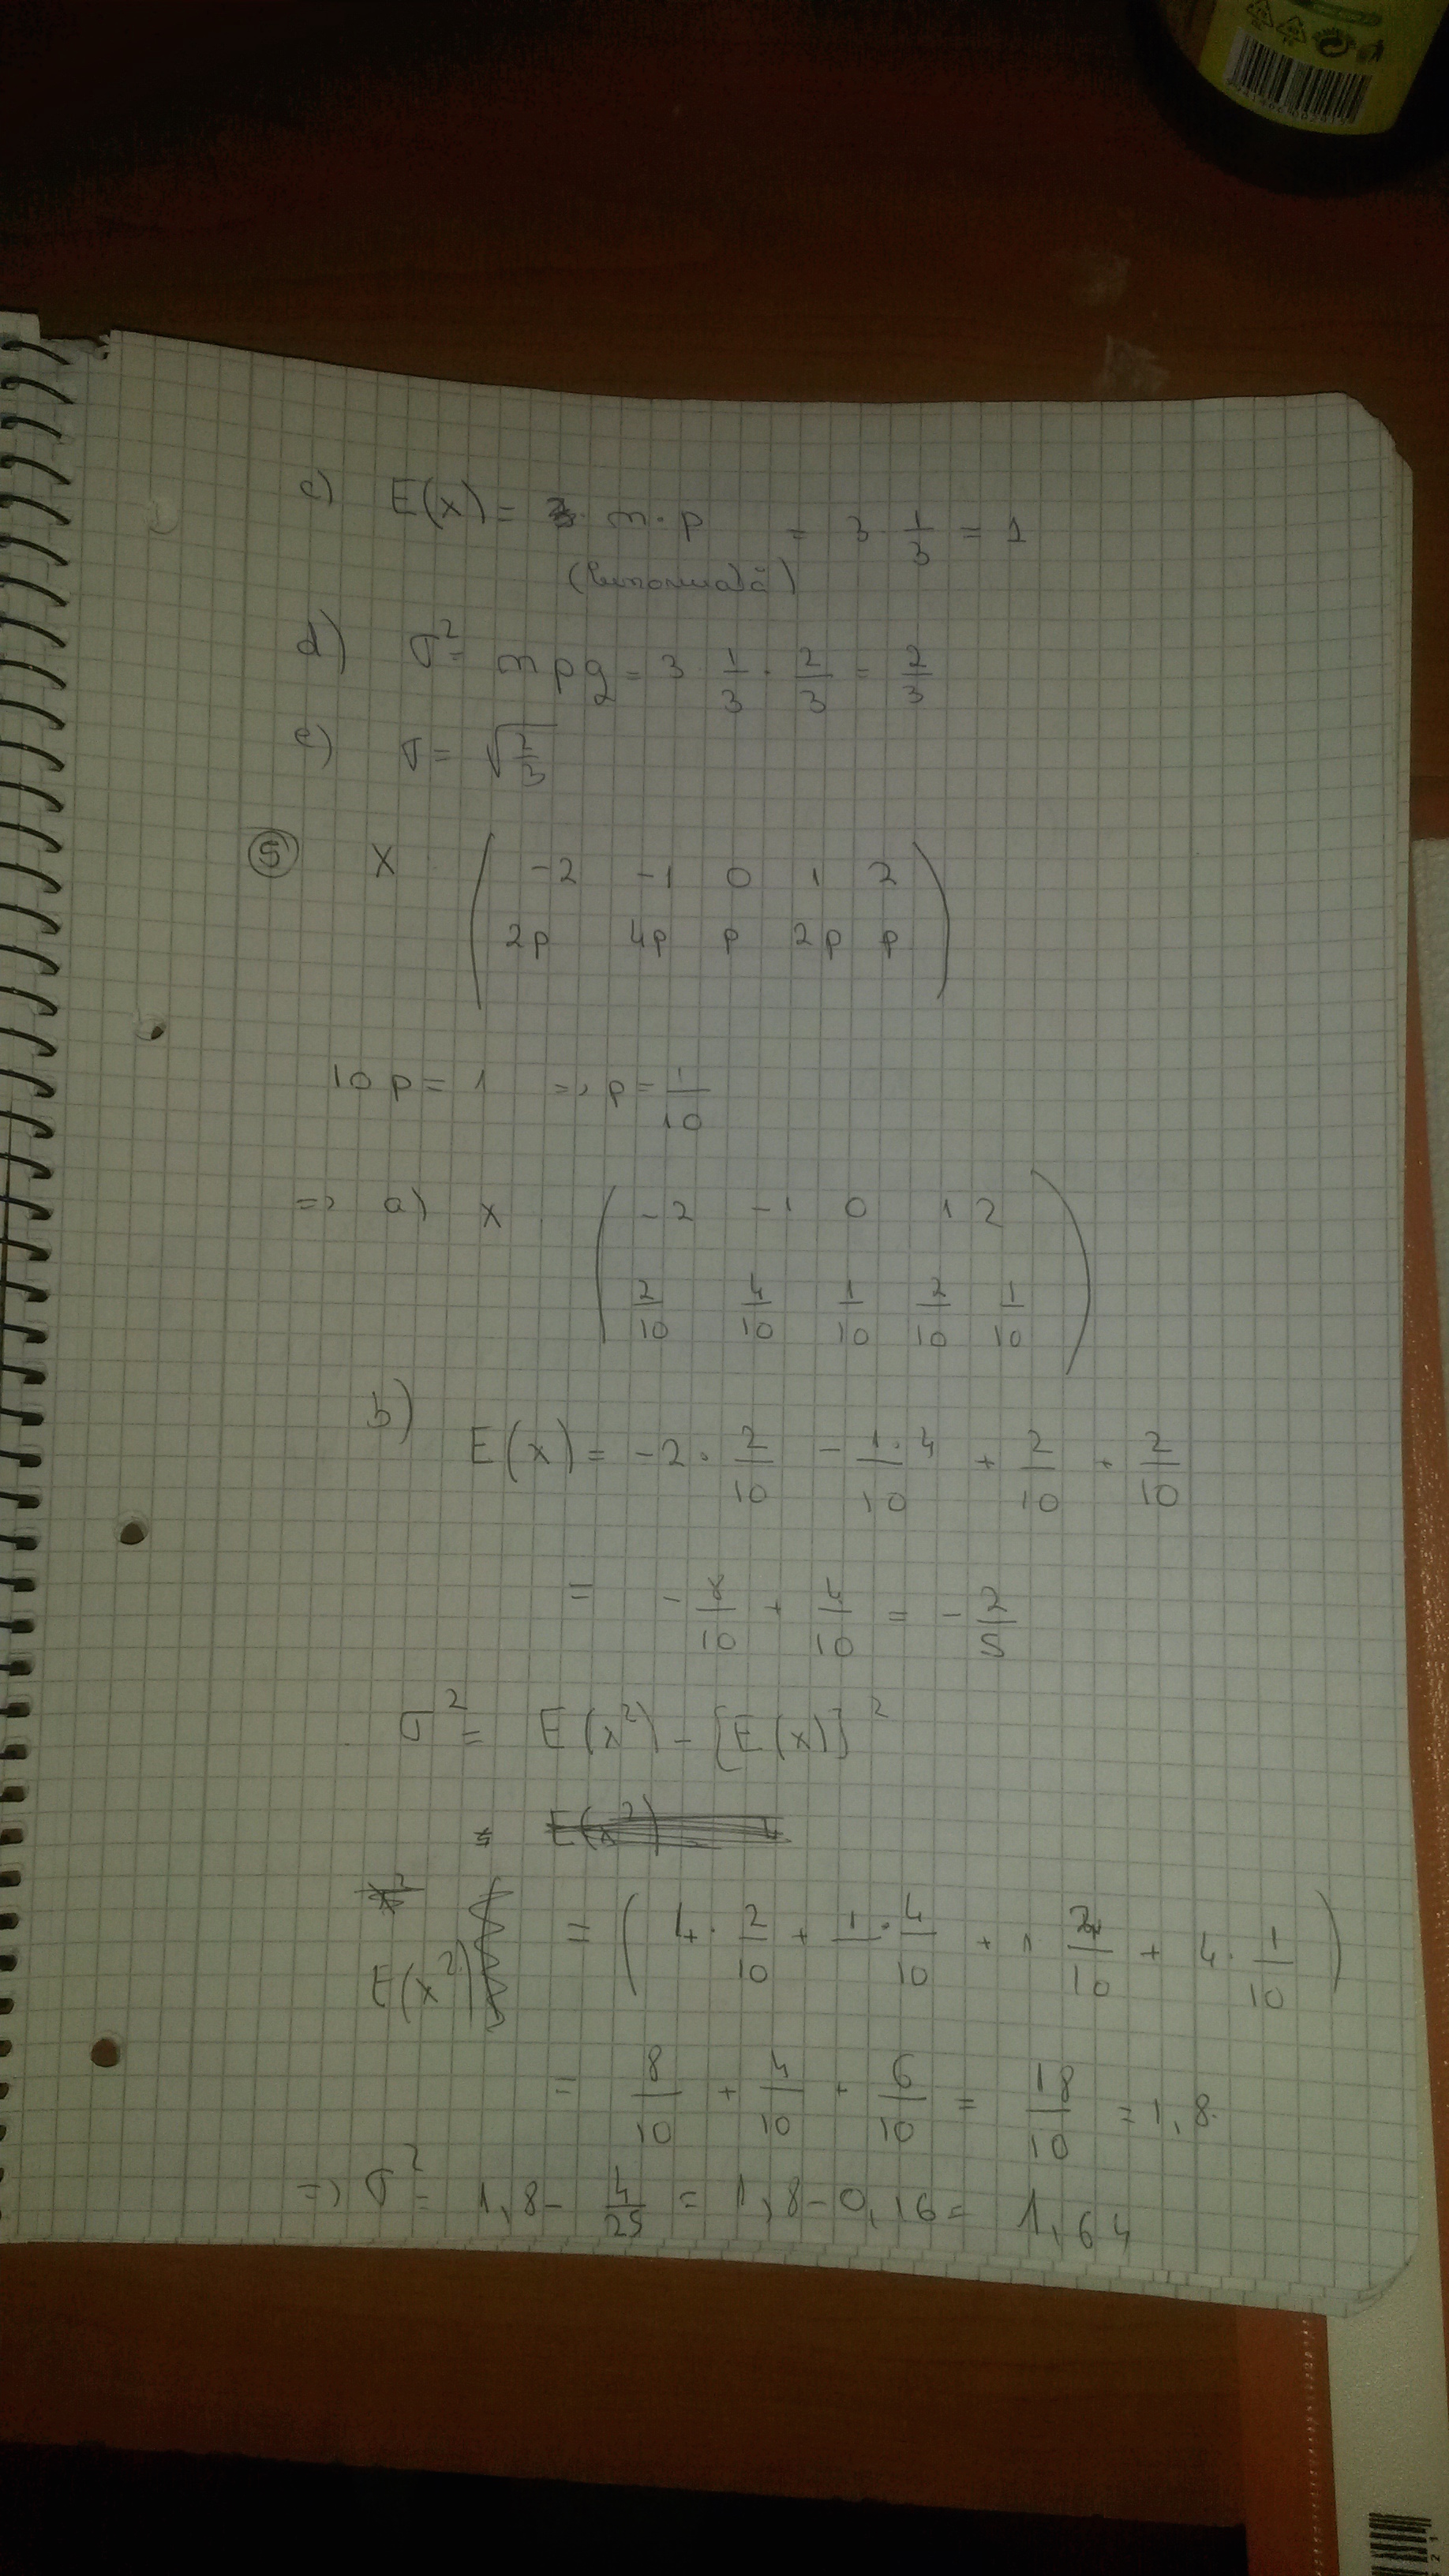 c) E(x) = n·p = 3 · 1/3 = 1
(binomială)
d) σ² = npq = 3 · 1/3 · 2/3 = 2/3
e) σ = √(2/3)
⑤ X : ( -2 -1 0 1 2
2p 4p p 2p p )
10p = 1 => p = 1/10
=> a) x : ( -2 -1 0 1 2
2/10 4/10 1/10 2/10 1/10 )
b)
E(x) = -2 · 2/10 - 1·4/10 + 2/10 + 2/10
= - 8/10 + 4/10 = - 2/5
σ² = E(x²) - [E(x)]²
= E(x²)
x²
E(x²) = ( 4 · 2/10 + 1 · 4/10 + 1 2/10 + 4 · 1/10 )
= 8/10 + 4/10 + 6/10 = 18/10 = 1,8.
=> σ² = 1,8 - 4/25 = 1,8 - 0,16 = 1,64